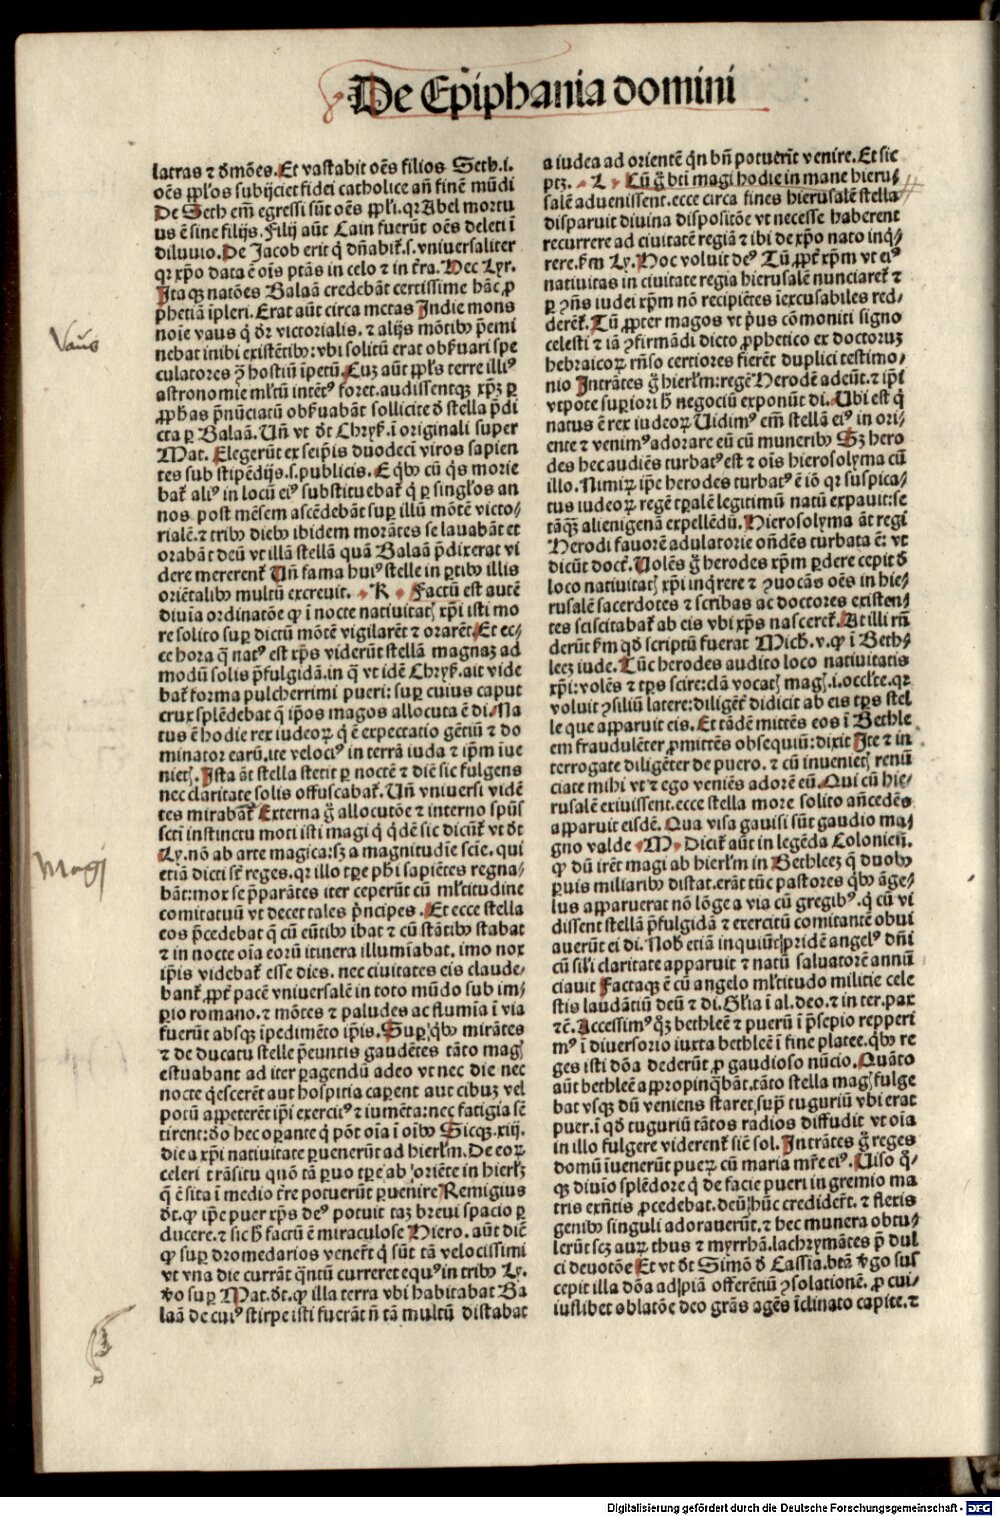 De Epiphania domini
latras ⁊ dmões. Et vastabit oẽs filios Seth .i.
oẽs pplos subijciet fidei catholice añ finẽ mũdi
De Seth em̃ egressi sũt oẽs ppli. qꝛ Abel mortu
us ẽ sine filijs. Filij aũt Cain fuerũt oẽs deleti ĩ
diluuio. De Jacob erit q̇ dñabit̃. s. vniuersaliter
qꝛ xp̃o data ẽ oĩs ptãs in celo ⁊ in t̃ra. Hec Lyr.
Itaqꝫ natões Balaã credebãt certissime hãc ꝓ
phetiã ĩpleri. Erat aũt circa metas Indie mons
noĩe vaus q̇ dr̃ victorialis. ⁊ alijs mõtibꝰ p̃emi
nebat inibi existẽtibꝰ: vbi solitũ erat obẜuari spe
culatores ꝯ̃ hostiũ ĩpetũ. Cuꝫ aũt ppl̃s terre illiꝰ
astronomie ml̃tũ intẽtꝰ foret. audissentqꝫ xp̃ꝫ ꝑ
ꝓphas p̃nũciatũ obẜuabãt sollicite ð stella p̃di
cta ꝑ Balaã. Uñ vt dt̃ Chryß. ĩ originali super
Mat. Elegerũt ex seip̃is duodecĩ viros sapien
tes sub stipẽdijs .s. publicis. E q̇bꝰ cũ q̇s morie
bat̃ aliꝰ in locũ eiꝰ substituebat̃ q̇ ꝑ singl̃os an
nos post mẽsem ascẽdebãt suꝑ illũ mõtẽ victo⸗
rialẽ. ⁊ tribꝰ diebꝰ ibidem morãtes se lauabãt et
orabãt deũ vt illã stellã quã Balaã p̃dixerat vi
dere mererent̃ Uñ fama huiꝰ stelle in ꝑtibꝰ illis
oriẽtalibꝰ multũ excreuit. K Factũ est autẽ
diuĩa ordinatõe ꝙ ĩ nocte natiuitatꝭ xp̃i isti mo
re solito suꝑ dictũ mõtẽ vigilarẽt ⁊ orarẽt. Et ec⸗
ce hora q̃ natꝰ est xp̃s viderũt stellã magnaꝫ ad
modũ solis p̃fulgidã. in q̃ vt idẽ Chryß. ait vide
bat̃ forma pulcherrimi pueri: suꝑ cuius caput
crux splẽdebat q̃ ip̃os magos allocuta ẽ di. Na
tus ẽ hodie rex iudeoꝝ q̇ ẽ expectatio gẽtiũ ⁊ do
minator earũ. ite velociꝰ in terrã iuda ⁊ ip̃m ĩue
nietꝭ. Ista ãt stella stetit ꝑ noctẽ ⁊ diẽ sic fulgens
nec claritate solis offuscabat̃. Uñ vniuersi vidẽ
tes mirabãt̃ Externa g̃ allocutõe ⁊ interno sp̃us
scti instinctu moti isti magi q̇ q̇dẽ sic dicũt̃ vt dt̃
Ly. nõ ab arte magica: sꝫ a magnitudĩe sciẽ. qui
etiã dicti sĩt reges. qꝛ illo tꝑe phĩ sapiẽtes regna⸗
bãt: mox se p̃parãtes iter ceperũt cũ ml̃titudine
comitatuũ vt decet tales p̃ncipes. Et ecce stella
eos p̃cedebat q̃ cũ eũtibꝰ ibat ⁊ cũ stãtibꝰ stabat
⁊ in nocte oĩa eorũ itinera illumĩabat. imo nox
ip̃is videbat̃ esse dies. nec ciuitates eis claude⸗
bant̃ ꝓpt̃ pacẽ vniuersalẽ in toto mũdo sub im⸗
ꝑio romano. ⁊ mõtes ⁊ paludes ac flumĩa ĩ via
fuerũt absqꝫ ĩpedimẽto ip̃is. Suꝑ q̇bꝰ mirãtes
⁊ de ducatu stelle p̃euntis gaudẽtes tãto magꝭ
estuabant ad iter ꝑagendũ adeo vt nec die nec
nocte q̇escerẽt aut hospitia caperent aut cibuꝫ vel
potũ appeterẽt ip̃i exercitꝰ ⁊ iumẽta: nec fatigia sẽ
tirent: ðo hec oꝑante q̇ põt oĩa ĩ oĩbꝰ Sicqꝫ .xiij.
die a xp̃i natiuitate ꝑuenerũt ad hierl̃m. De eoꝝ
celeri trãsitu quõ tã ꝑuo tꝑe ab oriẽte in hierl̃ꝫ
q̃ ẽ sita ĩ medio t̃re potuerũt ꝑuenire Remigius
dt̃. ꝙ ip̃e puer xp̃s deꝰ potuit taꝫ breui spacio ꝑ
ducere. ⁊ sic h̃ factũ ẽ miraculose Hiero. aũt dicĩt
ꝙ suꝑ dromedarios venert̃ q̇ sũt tã velocissimi
vt vna die currãt q̃ntũ curreret equꝰ in tribꝰ Ly.
ṽo suꝑ Mat. dt̃. ꝙ illa terra vbi habitabat Ba
laã de cuiꝰ stirpe isti fuerãt ñ tã multũ distabat
a iudea ad orientẽ q̇n bñ potuerĩt venire. Et sic
ptꝫ. L Cũ g̃ bt̃i magi hodie in mane hieru⸗
salẽ aduenissent. ecce circa fines hierusalẽ stella
disparuit diuina dispositõe vt necesse haberent
recurrere ad ciuitatẽ regiã ⁊ ibi de xp̃o nato inq̇⸗
rere. ẜm Ly. Hoc voluit deꝰ Tũ ꝓpt̃ xp̃m vt eiꝰ
natiuitas in ciuitate regia hierusalẽ nunciaret̃ ⁊
ꝑ ꝯñs iudei xp̃m nõ recipiẽtes ĩexcusabiles red⸗
derẽt̃. Tũ ꝓpter magos vt p̃us cõmoniti signo
celesti ⁊ iã ꝯfirmãdi dicto ꝓphetico ex doctoruꝫ
hebraicoꝝ rñso certiores fierẽt duplici testimo⸗
nio Intrãtes g̃ hierl̃m: regẽ Herodẽ adeũt. ⁊ ip̃i
vtpote superiori h̃ negociũ exponũt di. Ubi est q̇
natus ẽ rex iudeoꝝ Uidimꝰ em̃ stellã eiꝰ in ori⸗
ente ⁊ venimꝰ adorare eũ cũ muneribꝰ Sꝫ hero
des hec audiẽs turbatꝰ est ⁊ oĩs hierosolyma cũ
illo. Nimiꝝ ip̃e herodes turbatꝰ ẽ iõ qꝛ suspica⸗
tus iudeoꝝ regẽ tꝑalẽ legitimũ natũ expauit: se
tãqꝫ alienigenã expellẽdũ. Hierosolyma ãt regi
Herodi fauorẽ adulatorie oñdẽs turbata ẽ: vt
dicũt doct̃. Uolẽs g̃ herodes xp̃m ꝑdere cepit ð
loco natiuitatꝭ xp̃i inq̇rere ⁊ ꝯuocãs oẽs in hie⸗
rusalẽ sacerdotes ⁊ scribas ac doctores existen⸗
tes sciscitabat̃ ab eis vbi xp̃s nasceret̃. At illi rñ
derũt ẜm qð scriptũ fuerat Mich. v. ꝙ ĩ Beth⸗
leeꝫ iude. Tũc herodes audito loco natiuitatis
xp̃i: volẽs ⁊ tp̃s scire: clã vocatꝭ magꝭ .i. occl̃te. qꝛ
voluit ꝯsiliũ latere: diligẽt̃ didicit ab eis tp̃s stel
le que apparuit eis. Et tãdẽ mittẽs eos ĩ Bethle
em fraudulẽter ꝓmittẽs obsequiũ: dixit Ite ⁊ in
terrogate diligẽter de puero. ⁊ cũ inuenietꝭ renũ
ciate mihi vt ⁊ ego veniẽs adorẽ eũ. Qui cũ hie⸗
rusalẽ exiuissent. ecce stella more solito añcedẽs
apparuit eisdẽ. Qua visa gauisi sũt gaudio ma⸗
gno valde M Dicit̃ aũt in legẽda Colonieñ.
ꝙ dũ irẽt magi ab hierl̃m in Bethleeꝫ q̃ duobꝰ
ꝑuis miliaribꝰ distat. erãt tũc pastores q̇bꝰ ãge⸗
lus apparuerat nõ lõge a via cũ gregibꝰ. q̇ cũ vi
dissent stellã p̃fulgidã ⁊ exercitũ comitantẽ obui
auerũt ei di. Nob̃ etiã inquiũt pridẽ angelꝰ dñi
cũ sil̃i claritate apparuit ⁊ natũ saluatorẽ annũ
ciauit Factaqꝫ ẽ cũ angelo ml̃titudo militie cele
stis laudãtiũ deũ ⁊ di. Gl̃ia ĩ al. deo. ⁊ in ter. pax
⁊c̃. Accessimꝰ q̇ꝫ bethleẽ ⁊ puerũ ĩ p̃sepio repperi
mꝰ ĩ diuersorio iuxta bethleẽ ĩ fine platee. q̇bꝰ re
ges isti dõa dederũt ꝓ gaudioso nũcio. Quãto
aũt bethleẽ appropinq̃bãt. tãto stella magꝭ fulge
bat vsqꝫ dũ veniens staret sup̃ tuguriũ vbi erat
puer. ĩ qð tuguriũ tãtos radios diffudit vt oĩa
in illo fulgere viderent̃ sicũt sol. Intrãtes g̃ reges
domũ ĩuenerũt pueꝝ cũ maria mr̃e eiꝰ. Uiso q̇⸗
qꝫ diuĩo splẽdore q̇ de facie pueri in gremio ma
tris exñtis ꝓcedebat. deũ hũc credidert̃. ⁊ flexis
genibꝰ singuli adorauerũt. ⁊ hec munera obtu⸗
lerũt scꝫ auꝝ thus ⁊ myrrhã. lachrymãtes p̃ dul
ci deuotõe Et vt dt̃ Simõ ð Cassia. btã ṽgo sus
cepit illa dõa ad piã offerẽtiũ ꝯsolationẽ. ꝓ cui⸗
iuslibet oblatõe deo gr̃as agẽs ĩclinato capite. ⁊
Vaus
Magi
Digitalisierung gefördert durch die Deutsche Forschungsgemeinschaft - DFG